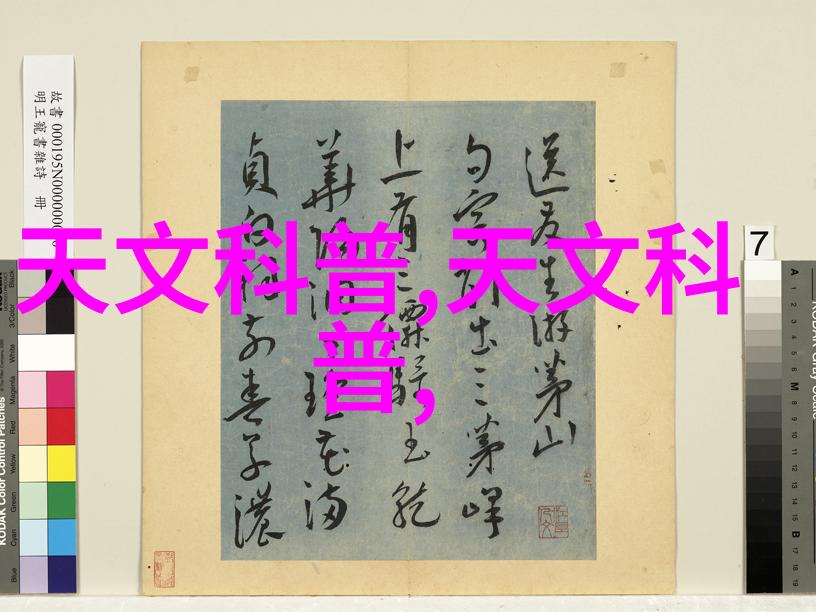 天文科普,天文科
普,
故書 000195N000000000
明王寵書雜詩 冊
送友生游茅山
句容別出三茅峰
上有三 騎玉龍
華陽洞 花滿
貞白祠前春草濃
7
KODAK Color Control Patches
Blue
Cyan
Green
Yellow
Red
Magenta
White
3/Color
Black
A 1 2 3 4 5 6 M 8 9 10 11 12 13 14 15 B 17 18 19